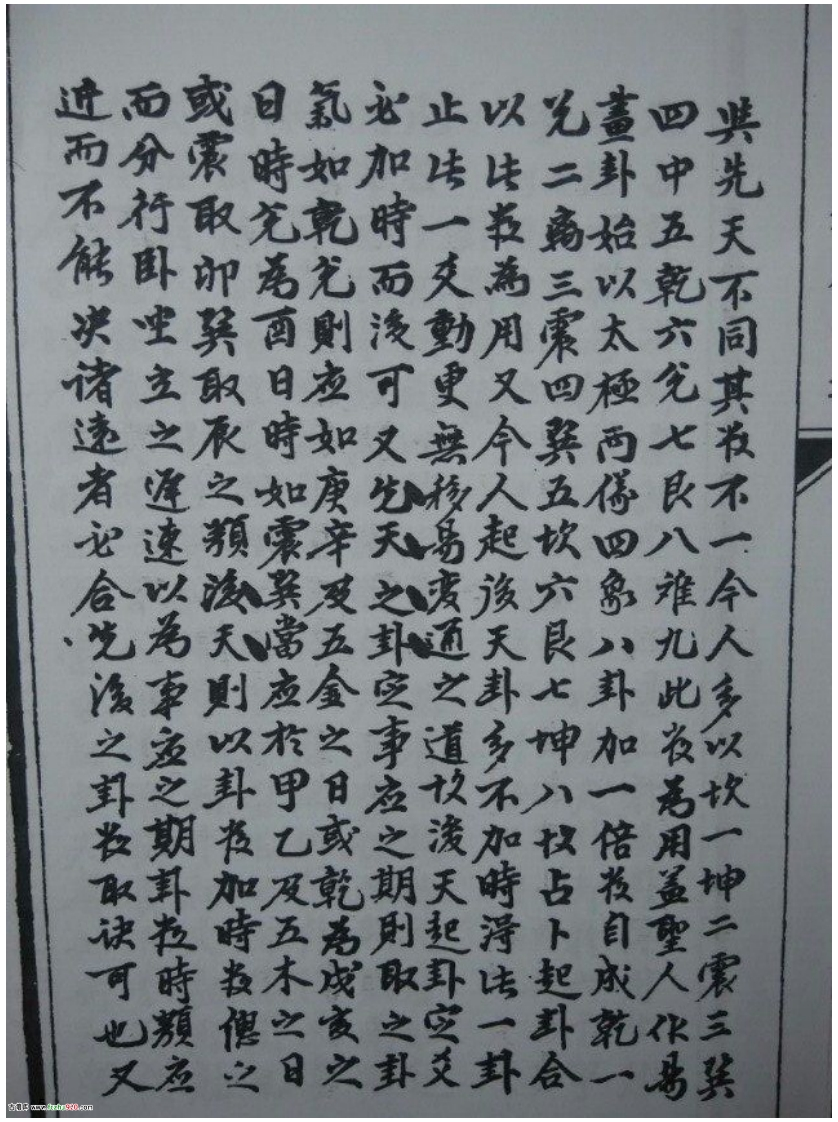 與先天不同其数不一今人多以坎一坤二震三巽
四中五乾六兑七艮八难九此数為用盖聖人作易
畫卦始以太極両儀四象八卦加一倍数自成乾一
兑二离三震四巽五坎六艮七坤八故占卜起卦合
以此数為用又今人起後天卦多不加時淂此一卦
止此一爻動更無移易变通之道故後天起卦定爻
必加時而後可又先天之卦定事应之期則取之卦
氣如乾兑則应如庚辛及五金之日或乾為戌亥之
日時兑為酉日時如震巽當应於甲乙及五木之日
或震取卯巽取辰之類後天則以卦数加時数總之
而分行卧坐立之遲速以為事应之期卦数時類应
近而不能决诸遠者必合先後之卦数取诀可也又
www.fozhu920.com